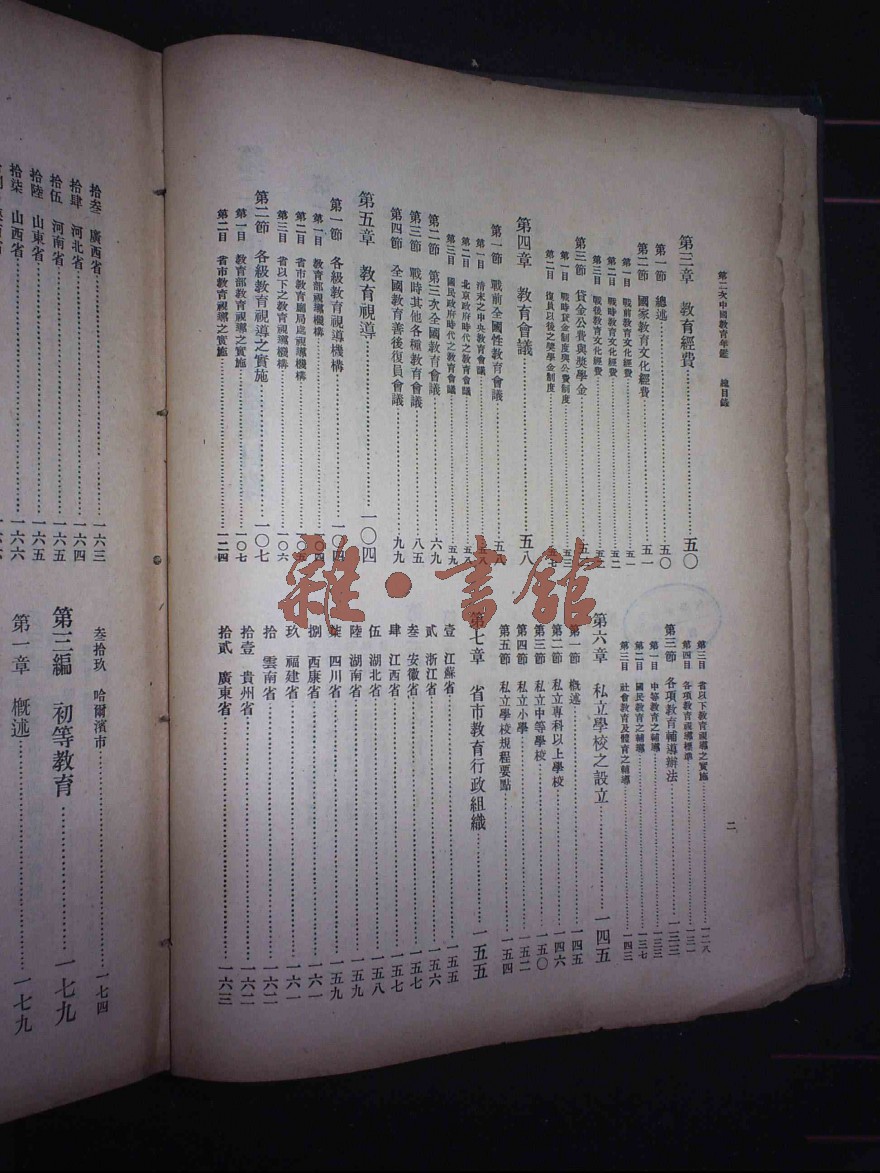 第二次中國教育年鑑　總目錄
第三章　教育經費……五〇
第一節　總述……五〇
第二節　國家教育文化經費……五一
第一目　戰前教育文化經費……五一
第二目　戰時教育文化經費……五二
第三目　戰後教育文化經費……五二
第三節　貸金公費與獎學金……五三
第一目　戰時貸金制度與公費制度……五三
第二目　復員以後之獎學金制度……五七
第四章　教育會議……五八
第一節　戰前全國性教育會議……五八
第一目　清末之中央教育會議……五八
第二目　北京政府時代之教育會議……五八
第三目　國民政府時代之教育會議……五九
第二節　第三次全國教育會議……六九
第三節　戰時其他各種教育會議……八五
第四節　全國教育善後復員會議……九九
第五章　教育視導……一〇四
第一節　各級教育視導機構……一〇四
第一目　教育部視導機構……一〇四
第二目　省市教育廳局處視導機構……一〇五
第三目　省以下之教育視導機構……一〇六
第二節　各級教育視導之實施……一〇七
第一目　教育部教育視導之實施……一〇七
第二目　省市教育視導之實施……一二四
第三目　省以下教育視導之實施……一二八
第四目　各項教育視導標準……一三一
第三節　各項教育輔導辦法……一三三
第一目　中等教育之輔導……一三三
第二目　國民教育之輔導……一三七
第三目　社會教育及體育之輔導……一四三
第六章　私立學校之設立……一四五
第一節　概述……一四五
第二節　私立專科以上學校……一四六
第三節　私立中等學校……一五〇
第四節　私立小學……一五二
第五節　私立學校規程要點……一五四
第七章　省市教育行政組織……一五五
壹　江蘇省……一五五
貳　浙江省……一五六
叁　安徽省……一五七
肆　江西省……一五七
伍　湖北省……一五八
陸　湖南省……一五九
柒　四川省……一五九
捌　西康省……一六一
玖　福建省……一六一
拾　雲南省……一六二
拾壹　貴州省……一六二
拾貳　廣東省……一六三
二
拾叁　廣西省……一六三
拾肆　河北省……一六四
拾伍　河南省……一六五
拾陸　山東省……一六五
拾柒　山西省……一六六
叁拾玖　哈爾濱市……一七四
第三編　初等教育……一七九
第一章　概述……一七九
雜·書館